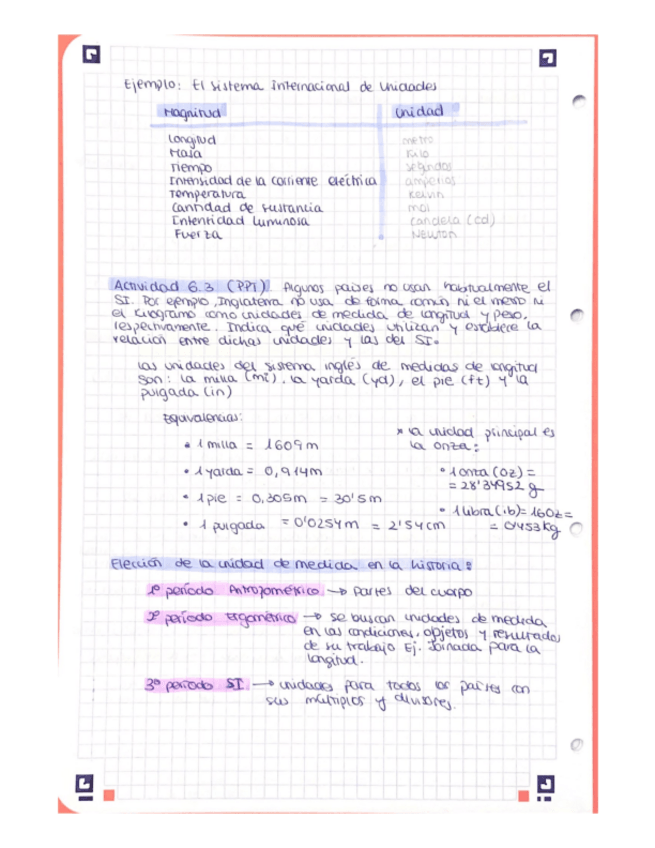 Ejemplo: El Sistema Internacional de Unidades
Magnitud Unidad
Longitud metro
Masa Kilo
Tiempo segundos
Intensidad de la corriente eléctrica amperios
Temperatura Kelvin
Cantidad de sustancia mol
Intentidad Luminosa candela (cd)
Fuerza Newton
Actividad 6.3 (PPT) Algunos países no usan habitualmente el
SI. Por ejemplo, Inglaterra no usa de forma común ni el metro ni
el Kilogramo como unidades de medida de longitud y peso,
respectivamente. Indica qué unidades utilizan y establece la
relación entre dichas unidades y las del SI.
Las unidades del sistema inglés de medidas de longitud
son: la milla (mi), la yarda (yd), el pie (ft) y la
pulgada (in)
Equivalencias:
• 1 milla = 1609 m
• 1 yarda = 0,914m
• 1 pie = 0,305m = 30'5m
• 1 pulgada = 0'0254m = 2'54cm
* la unidad principal es
la onza:
• 1 onza (oz) =
= 28'34952 g
• 1 libra (lb) = 16oz =
= 0'453kg
Elección de la unidad de medida en la historia:
1º período Antropométrico → Partes del cuerpo
2º período Ergométrico → se buscan unidades de medida
en las condiciones, objetos y resultados
de su trabajo Ej. Jornada para la
longitud.
3º período SI → unidades para todos los países con
sus múltiplos y divisores.